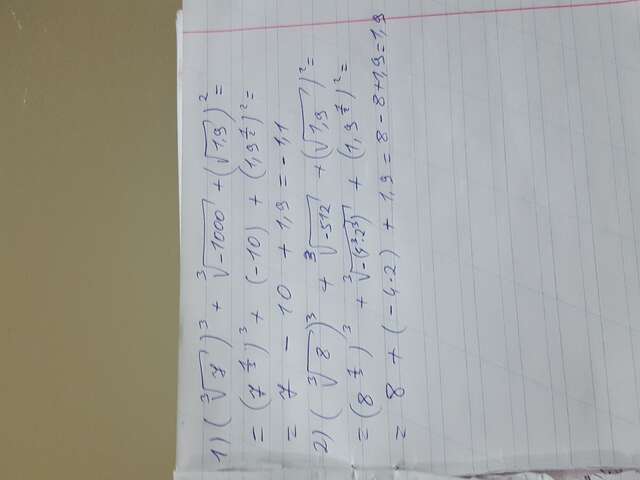 1) (∛7)³ + ∛-1000 + (√1,9)² =
= (7^(1/3))³ + (-10) + (1,9^(1/2))² =
= 7 - 10 + 1,9 = -1,1
2) (∛8)³ + ∛-512 + (√1,9)² =
= (8^(1/3))³ + ∛-(4³·2³) + (1,9^(1/2))² =
= 8 + (-4·2) + 1,9 = 8 - 8 + 1,9 = 1,9